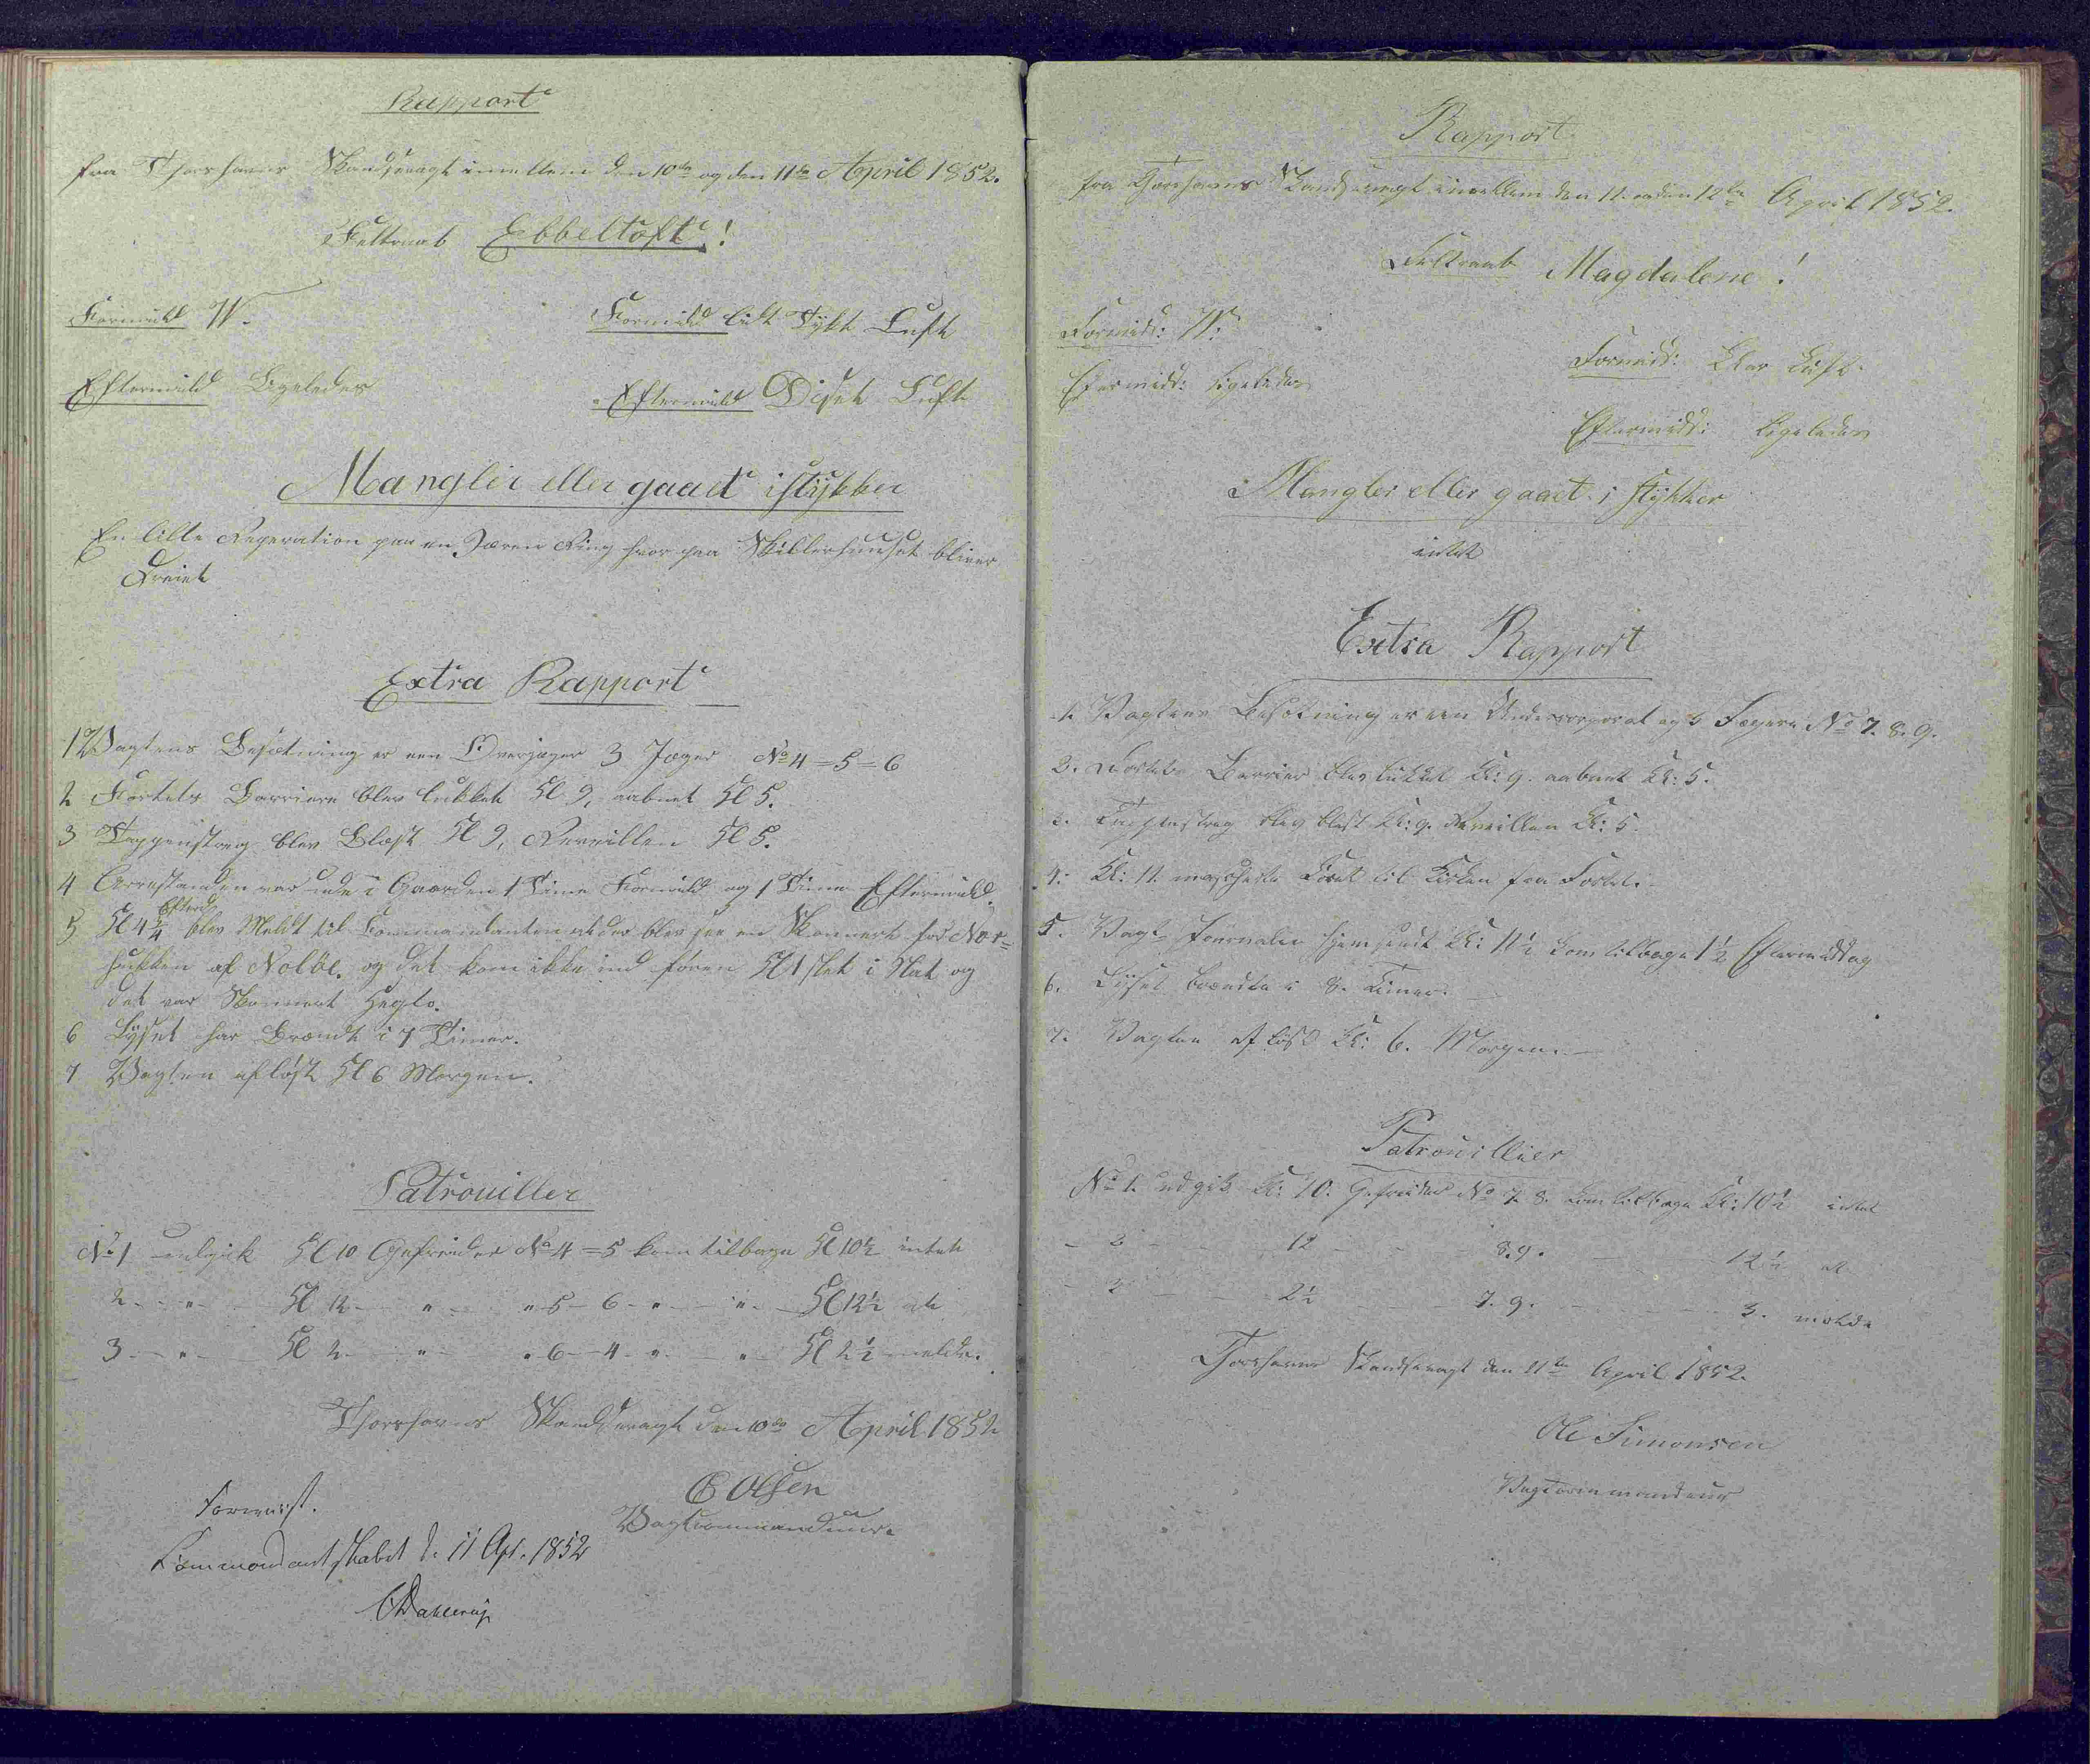 Rapport
fra Thorshavns Skandsevagt imellem den 10de og den 11te April 1852.
Feltraab Ebbeltoft!
Formidd W.
Formidd lidt Tykt Luft
Eftermidd Ligeledes
Eftermidd Diset Luft
Mangler eller gaaet istykker
En lille Reperation paa en Jæren Ring hvor paa Skillerhuuset bliver
Dreiet
Extra Rapport
1 Vagtens Besætning er een Overjæger 3 Jæger No 4=5=6
2 Fortets Barriere blev lukket Kl 9, aabnet Kl 5.
3 Tappenstreg blev Blæst Kl 9, Reveillen Kl 5.
4 Arrestanden var ude i Gaarden 1 Time Formidd og 1 Time Eftermidd.
Efterd
5 Kl 4 1/4 blev Meldt til Commandanten at der blev see en Skonnert for Nor=
hukken af Nolsøe. og det kom ikke ind føren Kl 1 slet i Nat og
det var Skonnert
6 Lyset har Brændt i 7 Timer.
7 Vagten afløst Kl 6 Morgen.
Patrouiller
No 1 udgik Kl 10 Gefreider No 4=5 kom tilbage Kl 10 1/2 intet
2 - " - Kl 12 - " - " 5 - 6 - " - " - Kl 12 1/2 at
3 - " - Kl 2 - " - " 6 - 4 - " - " Kl 2 1/2 melde.
Thorshavns Skandsevagt den 10de April 1852
C Olsen
Vagtcommandeur.
Foreviist.
Commandantskabet d. 11 Apr. 1852
CDahlerup
Rapport
fra Thorshavns Skandsevagt imellem den 11. og den 12te April 1852.
Feltraab Magdalene!
Formidd: W.
Formidd: klar Luft.
Efermidd: ligeledes
Eftermidd: ligeledes
Mangler eller gaaet i stykker
intet
Extra Rapport
1. Vagtens Besætning er een Undercorporal og 3 Jægere No 7. 8. 9.
2. Fortets Barrier blev lukket Kl: 9. aabnet Kl: 5.
3. Tappenstreg blev blest Kl: 9. Reveillen Kl: 5.
4. Kl: 11. marcherte Coret til Kirken fra Fortet.
5. Vagt Journalen hjemsendt Kl: 11 1/2 kom tilbage 1 1/2 Eftermiddag
6. Lyset brændte i 8. Timer.
7. Vagten afløst Kl: 6. Morgen.
Patrouillier
No 1. udgik Kl: 10. Gefreider No 7. 8. kom tilbage Kl: 10 1/2 intet
- 2 - 12 - 8. 9. - 12 1/2 at
- 3 - 2 1/2 - 7. 9. - 3. melde
Thorshavns Skandsevagt den 11te April 1852.
Ole Simonsen
Vagtcommandeur